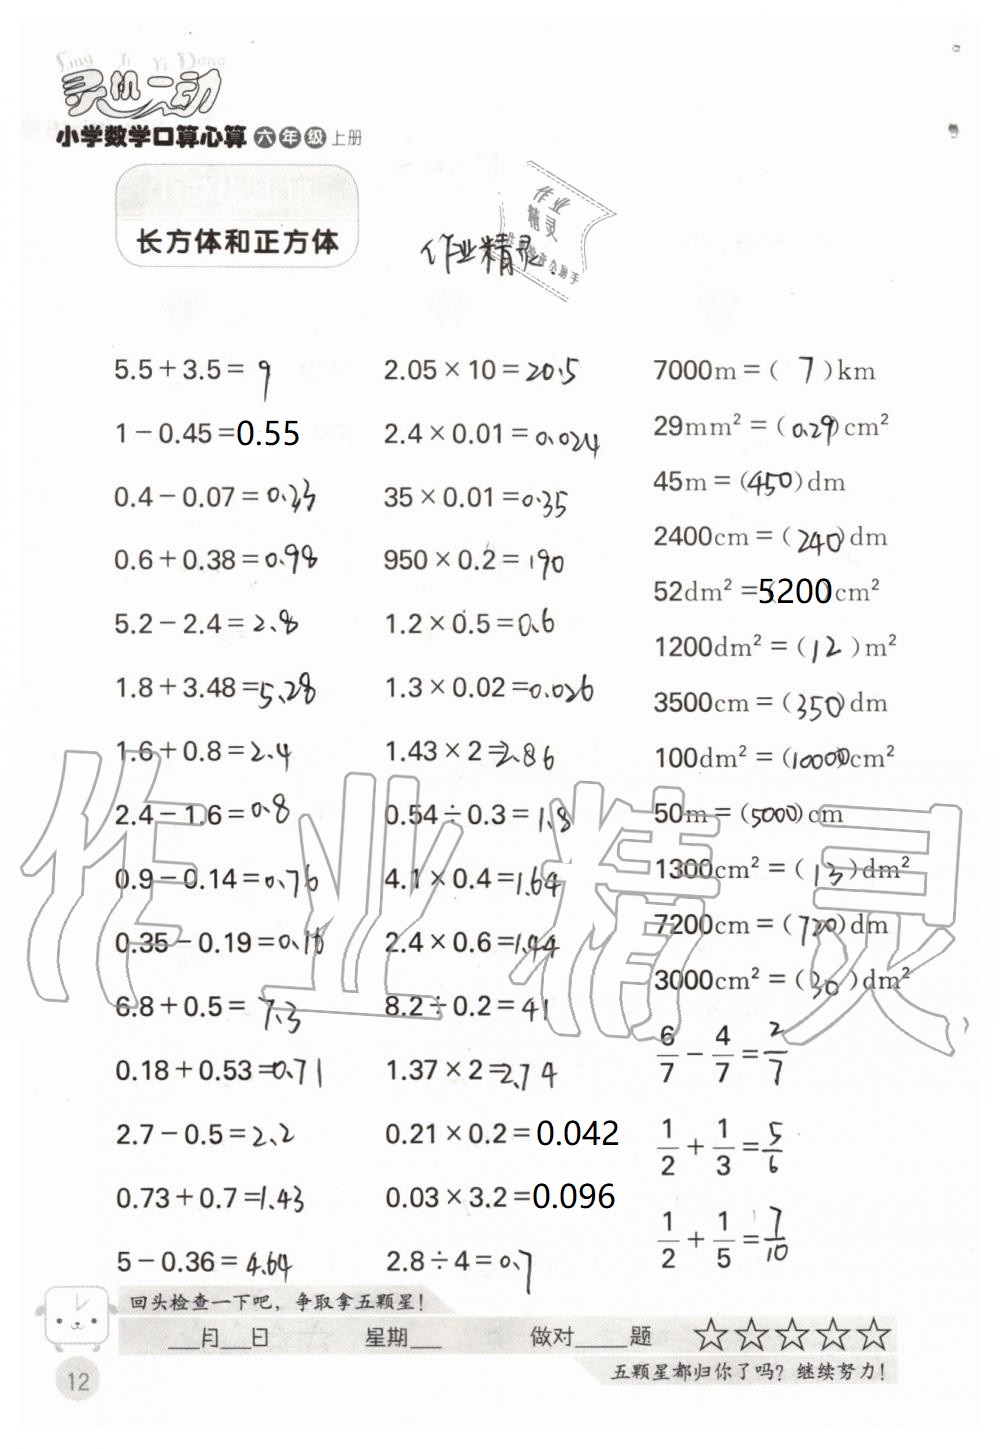 Ling Ji Yi Dong
灵机一动
小学数学口算心算 六年级 上册
长方体和正方体
作业精灵
作业
精灵
5.5+3.5=9
1-0.45=0.55
0.4-0.07=0.33
0.6+0.38=0.98
5.2-2.4=2.8
1.8+3.48=5.28
1.6+0.8=2.4
2.4-1.6=0.8
0.9-0.14=0.76
0.35-0.19=0.16
6.8+0.5=7.3
0.18+0.53=0.71
2.7-0.5=2.2
0.73+0.7=1.43
5-0.36=4.64
2.05×10=20.5
2.4×0.01=0.024
35×0.01=0.35
950×0.2=190
1.2×0.5=0.6
1.3×0.02=0.026
1.43×2=2.86
0.54÷0.3=1.8
4.1×0.4=1.64
2.4×0.6=1.44
8.2÷0.2=41
1.37×2=2.74
0.21×0.2=0.042
0.03×3.2=0.096
2.8÷4=0.7
7000m=(7)km
29mm²=(0.29)cm²
45m=(450)dm
2400cm=(240)dm
52dm²=5200cm²
1200dm²=(12)m²
3500cm=(350)dm
100dm²=(10000)cm²
50m=(5000)cm
1300cm²=(13)dm²
7200cm=(720)dm
3000cm²=(30)dm²
6/7-4/7=2/7
1/2+1/3=5/6
1/2+1/5=7/10
作业精灵
回头检查一下吧，争取拿五颗星！
___月___日 星期___ 做对____题 ☆☆☆☆☆
五颗星都归你了吗？继续努力！
12